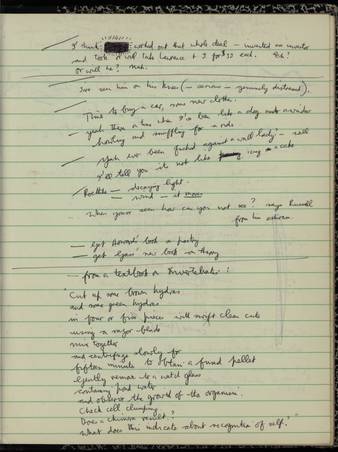 I think worked out that whole deal — invented an inventor
and took and will take Lawrence + I for $35 each. Ha!
or will he? Meh.
I've seen him on his knees (— arrow — genuinely distressed).
Time to buy a car, some new clothes.
— yeah there a time when I's been like a dog out a window
howling and sniffling for a ride
Yeah I've been pushed against a wall lady —
I'll tell you its not like icing a cake
Beetles — decaying light.
— wind — at moon
When you've seen how can you not see? says Russell
from his ashram.
— get book on poetry
— get new book on theory
— from a textbook on Invertebrates:
"Cut up some brown hydras
and some green hydras
in four or five pieces with swift clean cuts
using a razor blade
mix together
and centrifuge slowly for
fifteen minutes to obtain a fused pellet
Gently remove to a watch glass
containing pond water
and observe the growth of the organism.
Check cell clumping
Does a chimera result?
What does this indicate about recognition of self."